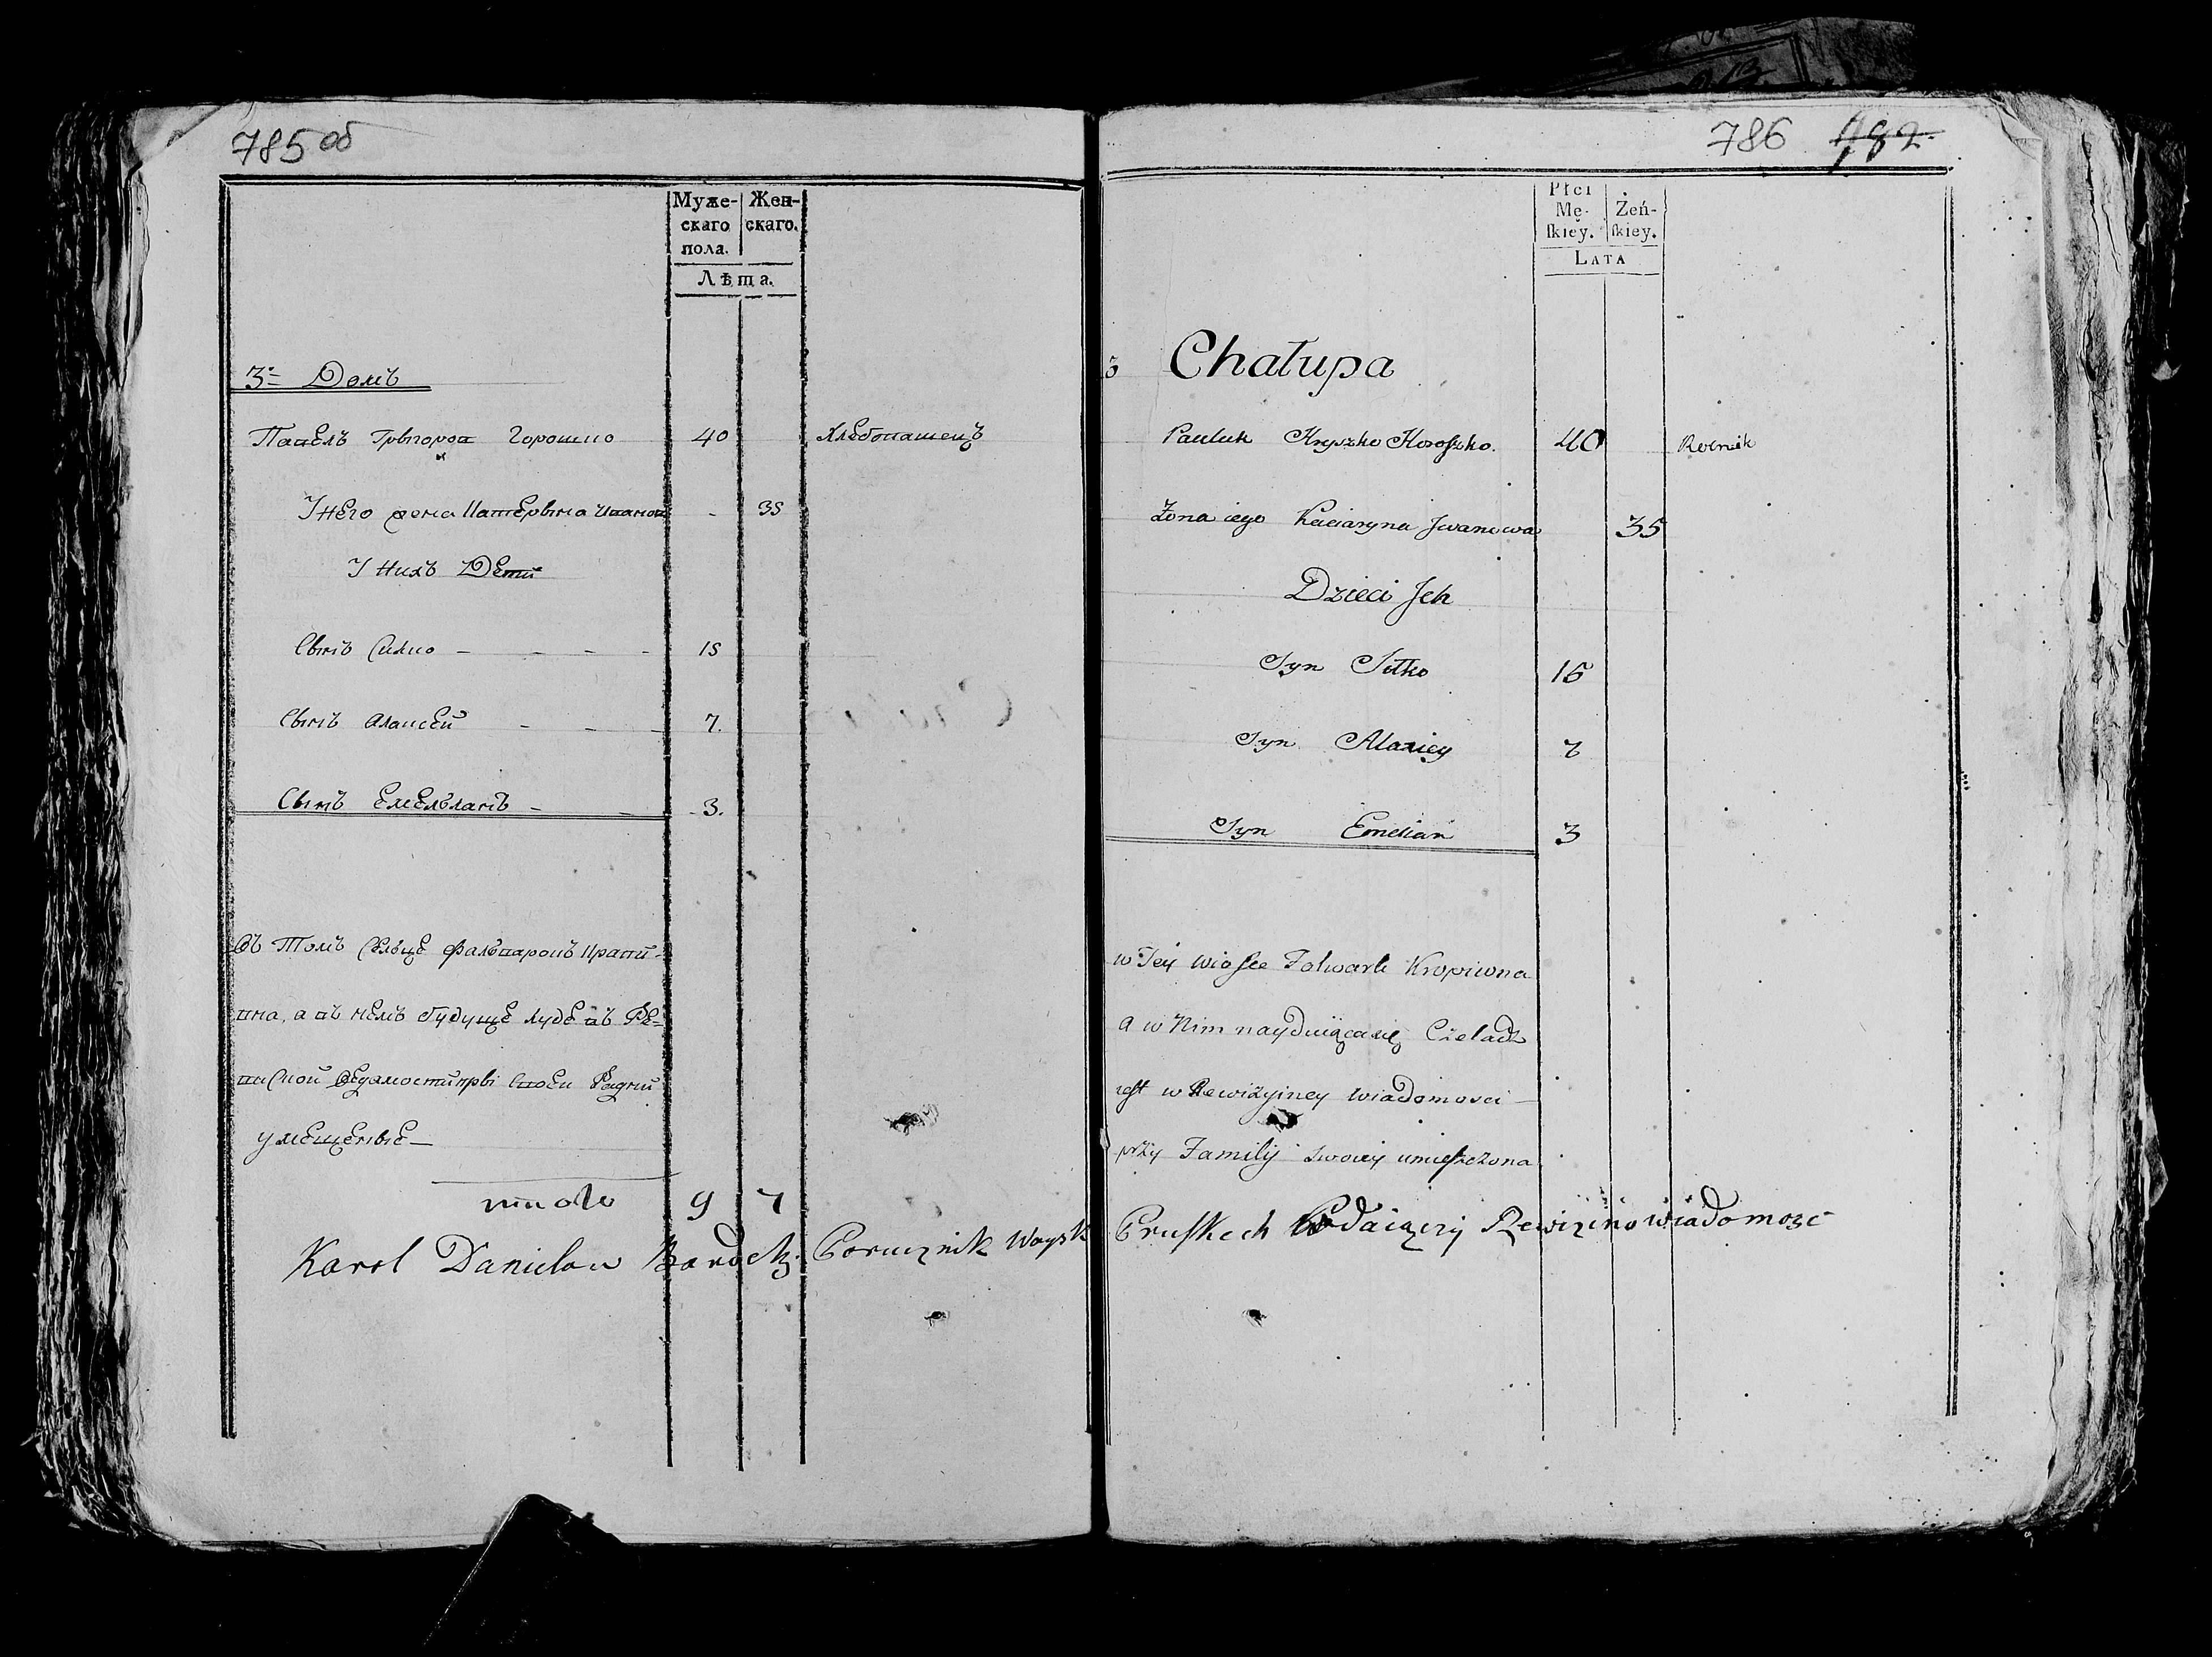 785 об
Муже-
скаго
пола.
Жен-
скаго.
Лѣта.
3е Домъ
Павелъ Горошко 40 Хлебопашецъ
У него жена Катерына Иванова - 35
У нихъ Дети
Сынъ Силко - - - - 15
Сынъ Алексей - - - 7.
Сынъ Емельланъ - - 3.
Въ Томъ Сельце фальваровъ Крапи-
вна, а въ немъ будуще люде въ Ре-
Ведамости пры своей
умещеные —
9 7
Karol Danielow Porucznik Woysk
786 782
Płci
Mę-
ſkiey.
Żeń-
ſkiey.
LATA
3 Chałupa
Pauluk Hryszko Horoſzko. 40 Rolnik
Żona iego Kaciaryna Jwanowa 35
Dzieci Jch
Syn Siłko 15
Syn Alaxiey 7
Syn Emelian 3
w Tey wiosce Folwark Kropiwna
a w Nim nayduiąca się Czeladz
ieſt w Rewizyiney wiadomosci —
przy Familij swoiey umieſzczona
Pruſkich Podaiączy Rewizino wiadomosc